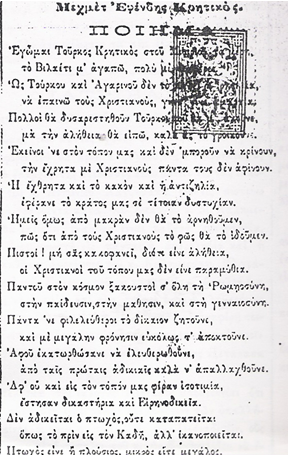 Μεχμὲτ Ἐφένδης Κρητικὸς.
ΠΟΙΗΜΑ
Ἐγὦμαι Τοῦρκος Κρητικὸς στοῦ
τὸ Βιλαέτι μ' ἀγαπῶ, πολὺ
Ὡς Τούρκου καὶ Ἀγαρινοῦ δὲν τὸ
νὰ ἐπαινῶ τοὺς Χριστιανοὺς,
Πολλοὶ θὰ δυσαρεστηθοῦν Τοῦρκοι
μὰ τὴν ἀλήθεια θὰ εἰπῶ, καλὰ
Ἐκεῖνοι 'νε στὸν τόπον μας καὶ δὲν 'μποροῦν νὰ κρίνουν,
τὴν ἔχρητα μὲ Χριστιανοὺς πάντα τους δὲν ἀφίνουν.
Ἡ ἔχθρητα καὶ τὸ κακὸν καὶ ἡ ἀντιζηλία,
ἐφέρανε τὸ κράτος μας σὲ τέτοιαν δυστυχίαν.
Ἡμεῖς ὅμως ἀπὸ μακρὰν δὲν θὰ τὸ ἀρνηθοῦμεν,
πῶς ὅτι ἀπὸ τοὺς Χριστιανοὺς τὸ φῶς θὰ τὸ ἰδοῦμεν.
Πιστοί! μὴ σᾶς κακοφανεῖ, διότι εἶνε ἀλήθεια,
οἱ Χριστιανοὶ τοῦ τόπου μας δὲν εἶνε παραμύθια.
Παντοῦ στὸν κόσμον ξακουστοὶ σ' ὅλη τὴ Ῥωμῃοσύνη,
στὴν παίδευσιν, στὴν μάθησιν, καὶ στὴ γενναιοσύνη.
Πάντα 'νε φιλελεύθεροι τὸ δίκαιον ζητοῦνε,
καὶ μὲ μεγάλην φρόνησιν εὐκόλως τ' ἀποκτοῦνε.
Ἀφοῦ ἐκατωρθώσανε νὰ ἐλευθερωθοῦνε,
ἀπὸ ταῖς πρώταις ἀδικιαῖς καλὰ ν' ἀπαλλαχθοῦνε.
Ἀφ' οὗ καὶ εἰς τὸν τόπόν μας φέραν ἰσοτιμία,
ἔστησαν δικαστήρια καὶ Εἰρηνοδικεῖα.
Δὲν ἀδικεῖται ὁ πτωχὸς, οὔτε καταπατεῖται
ὅπως τὸ πρὶν εἰς τὸν Καδῆ, ἀλλ' ἱκανοποιεῖται.
Πτωχὸς εἶνε ἢ πλούσιος, μικρὸς εἴτε μεγάλος.